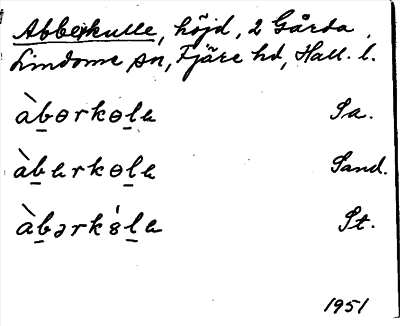 Abberkulle, höjd, 2 Gårda,
Lindome sn, Fjäre hd, Hall. l.
àb̲ɵrkɵl̲a Sa.
àb̲arkɵl̲a Sand.
àb̲ərk8́l̲a St.
1951